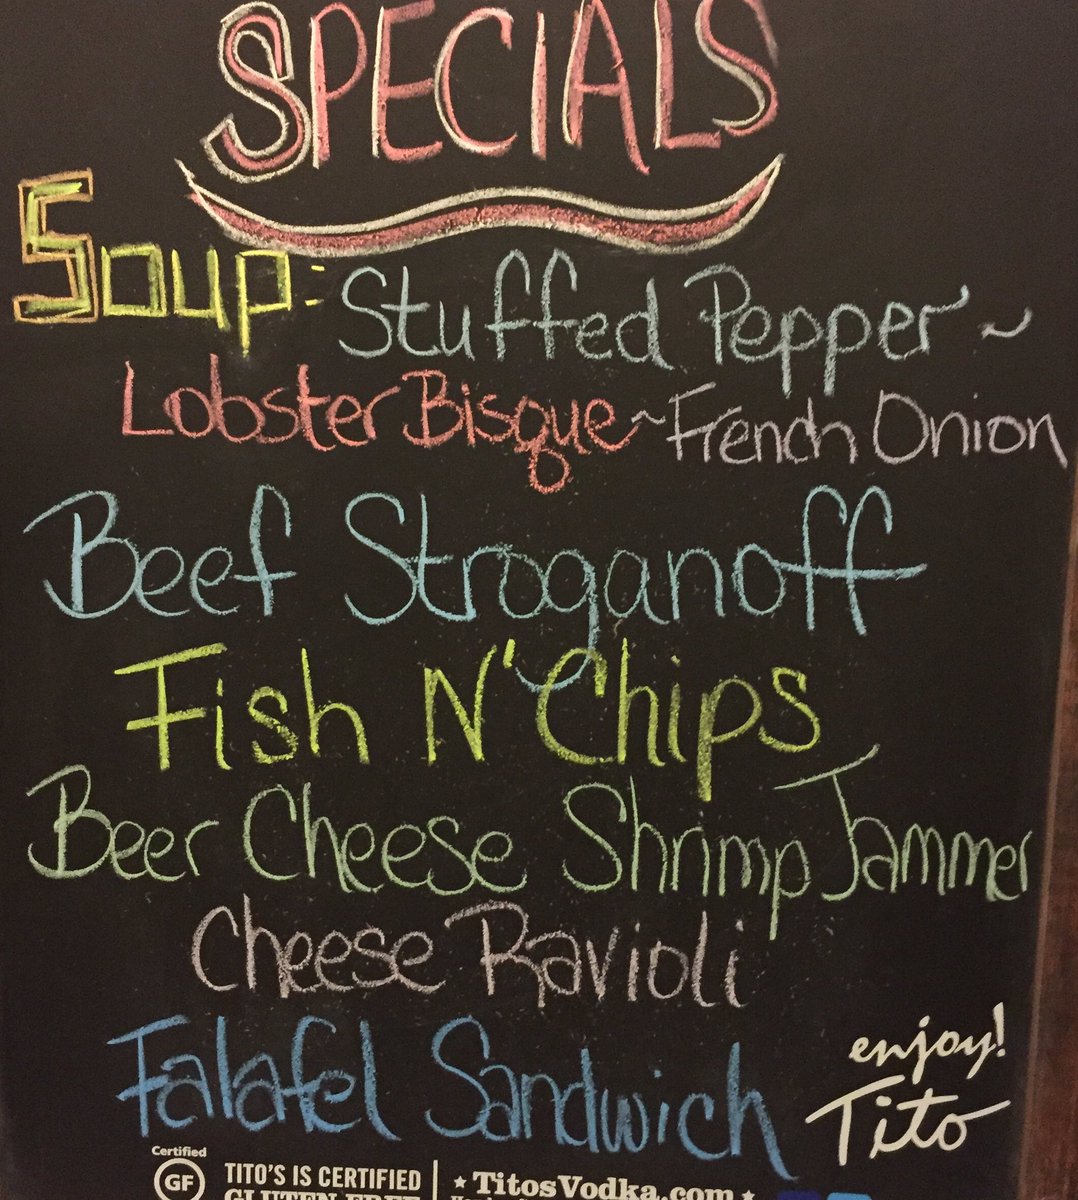 SPECIALS
Soup: Stuffed Pepper ~
Lobster Bisque ~ French Onion
Beef Stroganoff
Fish N' Chips
Beer Cheese Shrimp Jammer
Cheese Ravioli
Falafel Sandwich
enjoy!
Tito
Certified
GF
TITO'S IS CERTIFIED
GLUTEN FREE
★ TitosVodka.com ★